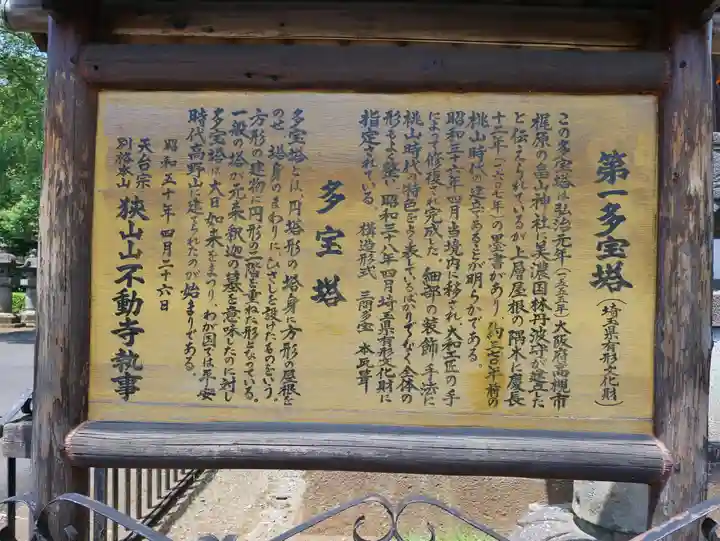 第一多宝塔（埼玉県有形文化財）
この多宝塔は弘治元年（一五五五年）大阪府高槻市
梶原の畠山神社に美濃国林丹波守が建立した
と伝えられているが上層屋根の隅木に慶長
十二年（一六〇七年）の墨書があり、約三七〇年前の
桃山時代の建立であることが明らかである。
昭和三十六年四月当境内に移され大和工匠の手
によって修復され完成した。細部の装飾、手法に
桃山時代の特色をよく表わしているばかりでなく全体の
形もよく整い昭和三十八年四月埼玉県有形文化財に
指定されている。構造形式 三間多宝 本瓦葺
多宝塔
多宝塔とは、円塔形の塔身に方形の屋根を
のせ、塔身のまわりにひさしを設けたものをいう。
方形の建物に円形の二階を重ねた形となっている。
一般の塔が元来釈迦の墓を意味したのに対し
多宝塔は大日如来をまつり、わが国では平安
時代高野山に建られたのが始まりである。
昭和五十年四月二十六日
天台宗
別格本山 狭山山不動寺執事